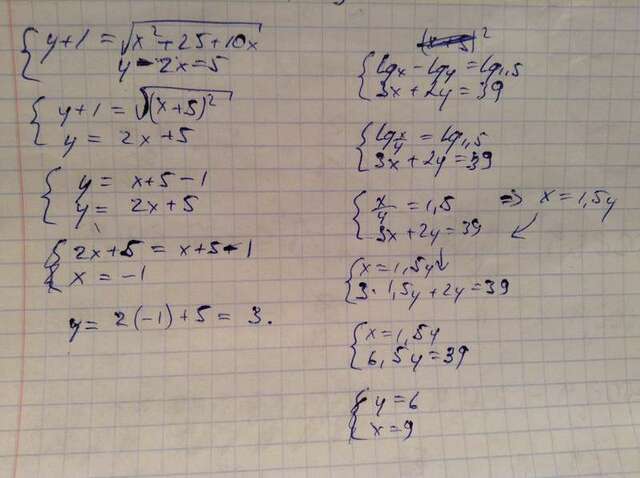 y+1 = √(x²+25+10x)
y - 2x = 5
y+1 = √(x+5)²
y = 2x+5
y = x+5-1
y = 2x+5
2x+5 = x+5-1
x = -1
y = 2(-1)+5 = 3.
(x+5)²
lgx - lgy = lg1,5
3x+2y=39
lg x/y = lg1,5
3x+2y=39
x/y = 1,5 => x=1,5y
3x+2y=39
x=1,5y
3·1,5y+2y=39
x=1,5y
6,5y=39
y=6
x=9